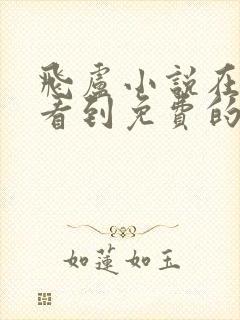 飛盧小說在
看到免費的
如蓮如玉